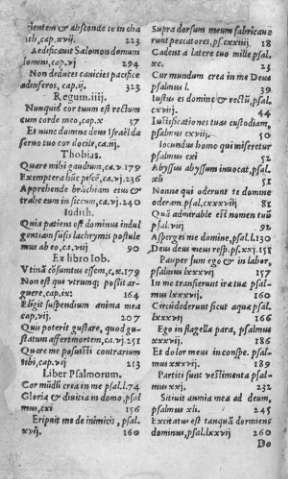 dentem & absconde te in cha
ith, cap.xvij. 223
Aedificauit Salomon domum
domini, cap.vj 294
Non deduces canicies pacifice
ad inferos, cap.ij 323
Regum.iiij.
Nunquid cor tuum est rectum
cum corde meo, cap.x 57
Et nunc domine deus Israël da
seruo tuo cor docile, ca.iij.
Thobias.
Quare mihi gaudium, ca.v.179
Exemptera hūc piscē, ca.vj.236
Apprehende brāchiam eius &
trahe eum in siccum, ca.vj.240
Iudith.
Quia patiens est dominus indul
gentiam fusis lachrymis postule
mus ab eo, ca.viij 90
Ex libro Iob.
Vtinā cōsumtus essem, c.x.179
Non est qui vtrumq; possit ar-
guere, cap.ix 164
Eligit suspendium anima mea
cap.vij. 207
Quis poterit gustare, quod gu-
statum affert mortem, ca.vj.251
Quare me posuisti contrarium
tibi, cap.vij 213
Liber Psalmorum.
Cor mūdū crea in me psal.l.74
Gloria & diuitiæ in domo, psal
mus, cxi 156
Eripuit me de inimicis, psal.
xvij. 160
Supra dorsum meum fabricaue
runt peccatores, ps.cxxviij 18
Cadent a latere tuo mille psal.
xc. 23
Cor mundum crea in me Deus
psalmus l. 39
Iustus es domine & rectū, psal.
cxviij. 44
Iustificationes tuas custodiam,
psalmus cxviij. 50
Iocundus homo qui miseretur
psalmus cxi 52
Abyssus abyssum inuocat, psal.
xli 51
Nonne qui oderunt te domine
oderam psal.cxxxviij 81
Quā admirabile est nomen tuū
psal.viij 92
Asperges me domine, psal.l.130
Deus deus meus resp. ps.xxj.151
Pauper sum ego & in labor,
psalmus lxxxvij 157
In me transierunt iræ tuæ psal-
mus lxxxvij. 160
Circundederunt sicut aqua psal.
lxxxvij 166
Ego in flagella para, psalmus
xxxvij. 186
Et dolor meus in conspe. psal-
mus xxxvij. 189
Partiti sunt vestimenta psal-
mus xxj. 232
Sitiuit anima mea ad deum,
psalmus xli. 245
Excitatus est tanquā dormiens
dominus, psal.lxxvij 260
Do